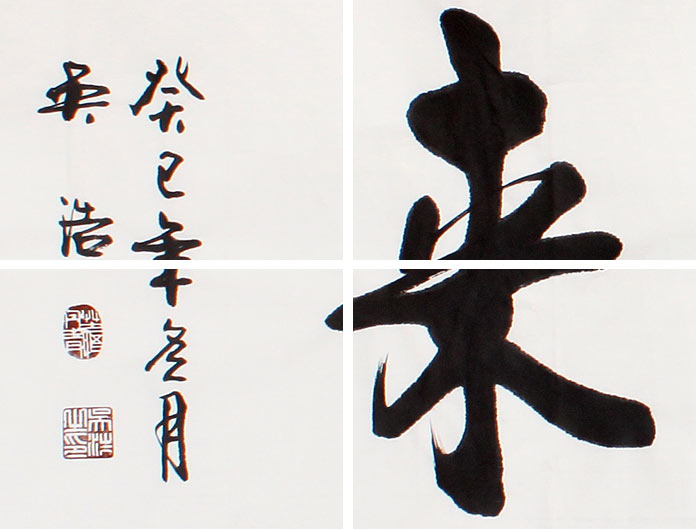 来
癸巳年冬月
吴浩